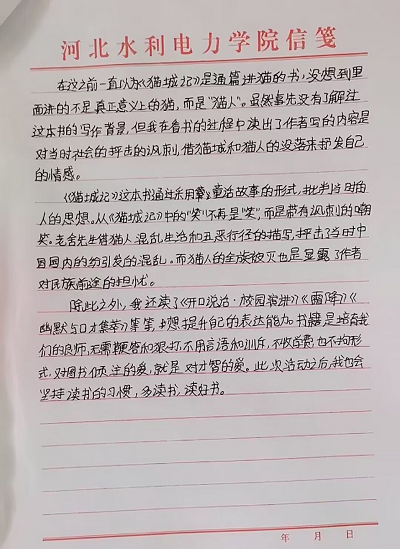 河北水利电力学院信笺
在这之前一直以为《猫城记》是通篇讲猫的书,没想到里
面讲的不是真正意义上的猫,而是“猫人”。虽然事先没有了解过
这本书的写作背景,但我在看书的过程中读出了作者写的内容是
对当时社会的抨击的讽刺,借猫城和猫人的没落来抒发自己
的情感。
《猫城记》这本书通过采用童话故事的形式,批判当时的
人的思想。从《猫城记》中的“笑”不再是“笑”,而是带有讽刺的嘲
笑。老舍先生借猫人混乱生活和丑恶行径的描写,抨击了当时中
国国内的纷引发的混乱。而猫人的全族败灭也是显露了作者
对民族前途的担忧。
除此之外,我还读了《开口说话·校园演讲》《霜降》《
幽默与口才集萃》等等,想提升自己的表达能力。书籍是培育我
们的良师,无需鞭笞和狠打,不用言语和训斥,不收学费,也不拘形
式,对图书倾注的爱,就是对才智的爱。此次活动之后,我也会
坚持读书的习惯,多读书,读好书。
年 月 日